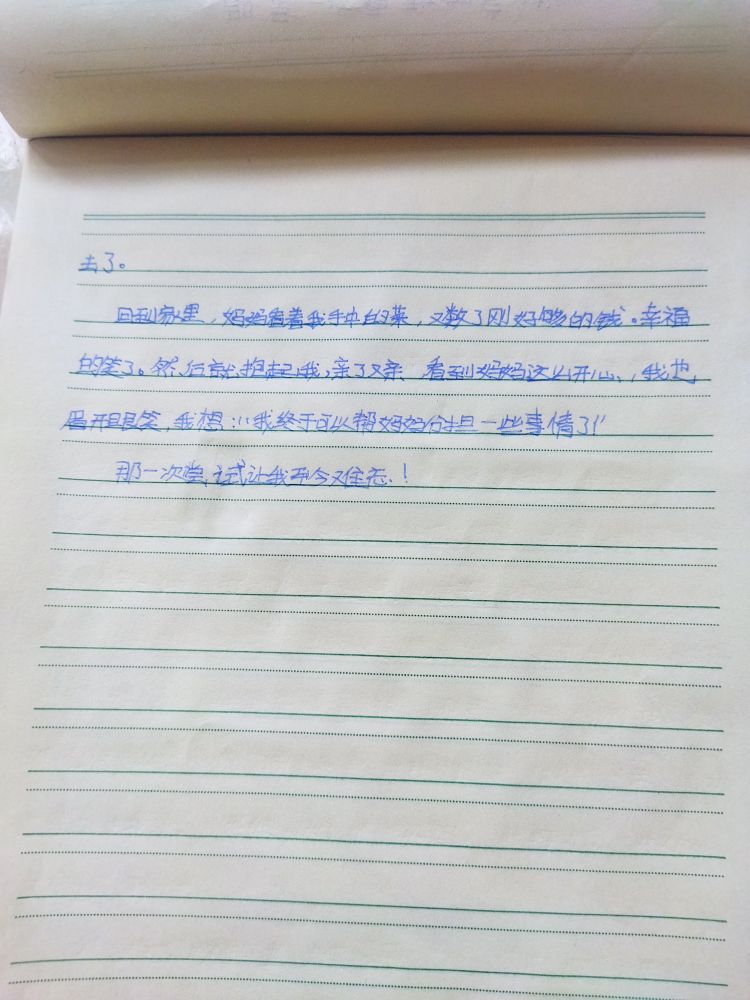 去了。
回到家里，妈妈看着我手中的菜，又数了刚好够的钱。幸福
的笑了。然后就抱起我，亲了又亲 看到妈妈这么开心，我也
眉开眼笑，我想：“我终于可以帮妈妈分担一些事情了！”
那一次尝试让我至今难忘！